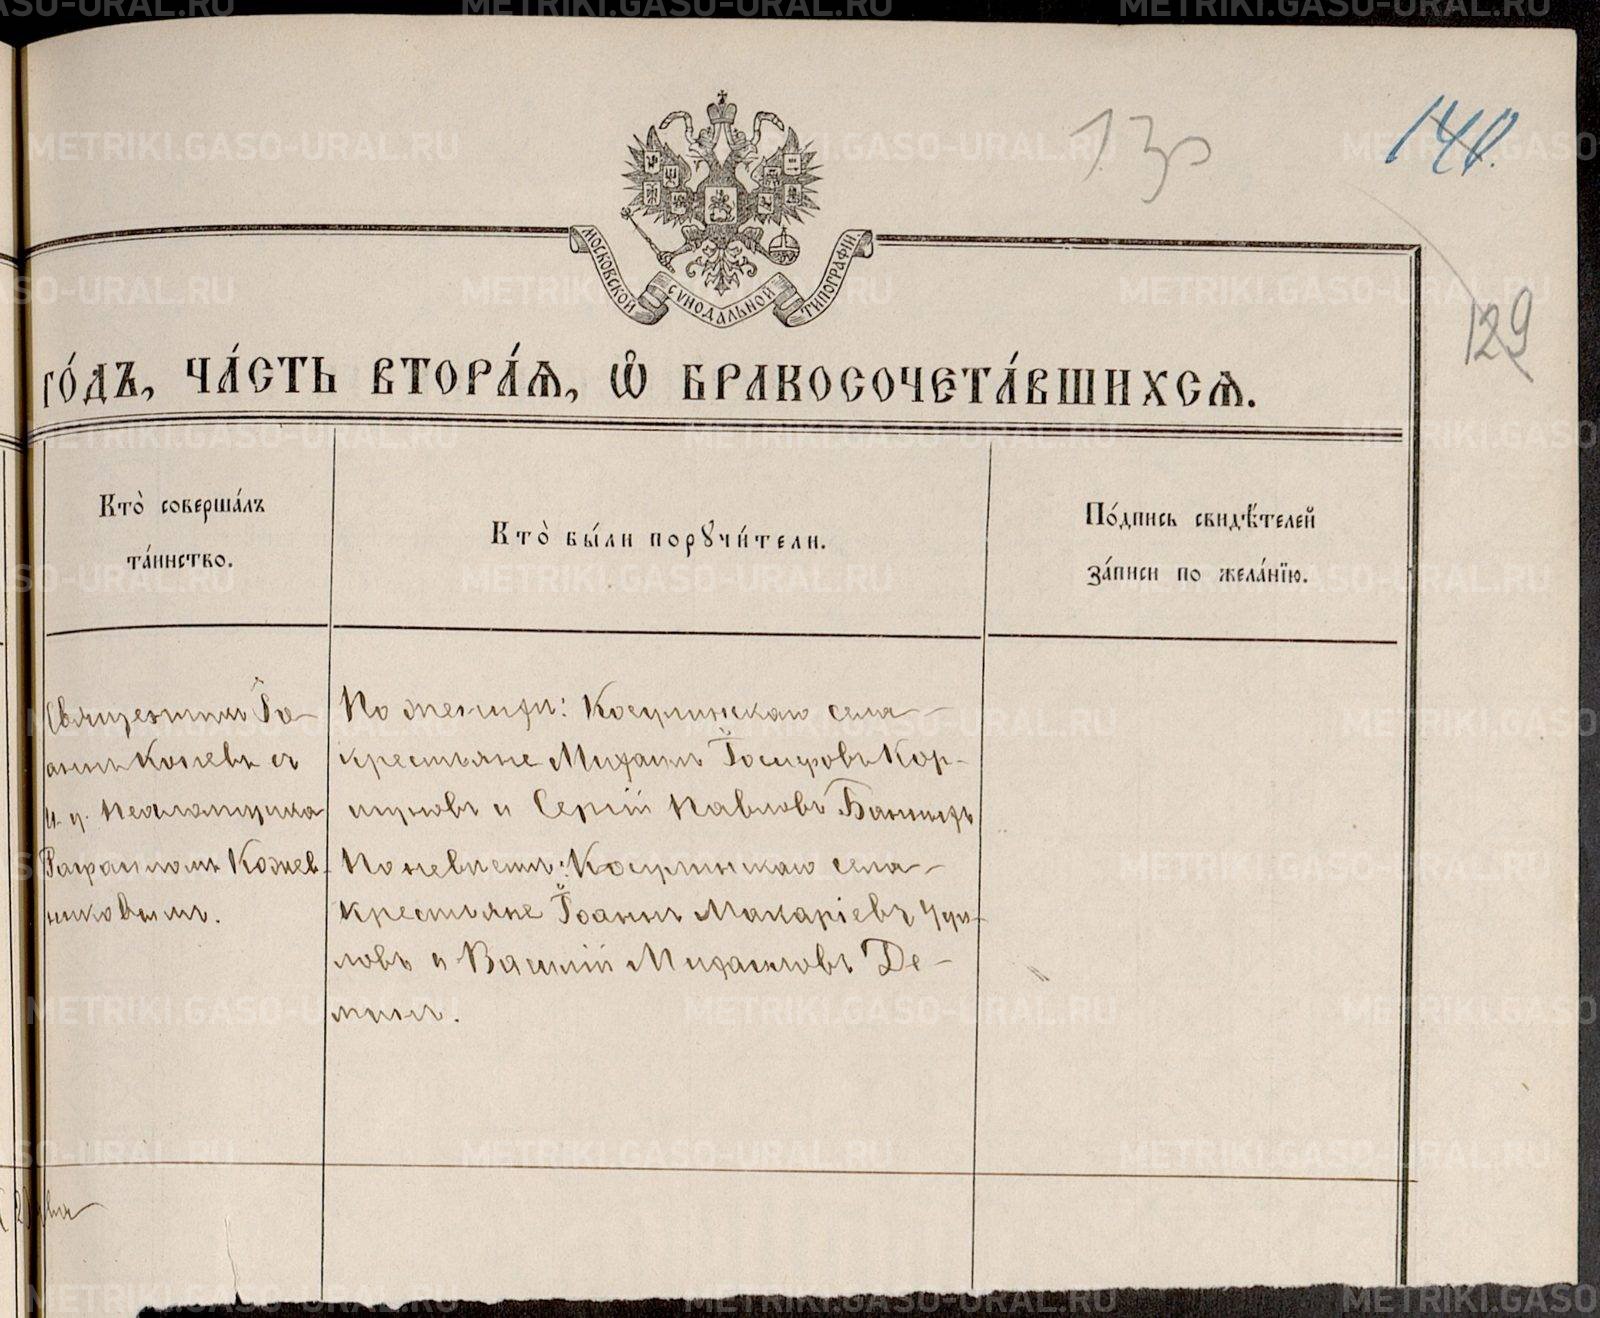 130
140.
129
МОСКОВСКОЙ СУНОДАЛЬНОЙ ТИПОГРАФІИ.
го́дъ, ча́сть втора́ѧ, ѡ҆ бракосочета́вшихсѧ.
Кто̀ соверша́лъ
та́инство.
Кто̀ бы́ли порꙋчи́тели.
По́дпись свидѣ́телей
за́писи по жела́нїю.
Священникъ Іо-
аннъ Копевъ съ
и. д. псаломщика
Рафаиломъ Кожев-
никовымъ.
По женихѣ: Косулинскаго села
крестьяне Михаилъ Іосифовъ Кор-
шуновъ и Сергій Павловъ
По невѣстѣ: Косулинскаго села
крестьяне Іоаннъ Макаріевъ Чури-
ловъ и Василій Михаиловъ Де-
минъ.
METRIKI.GASO-URAL.RU